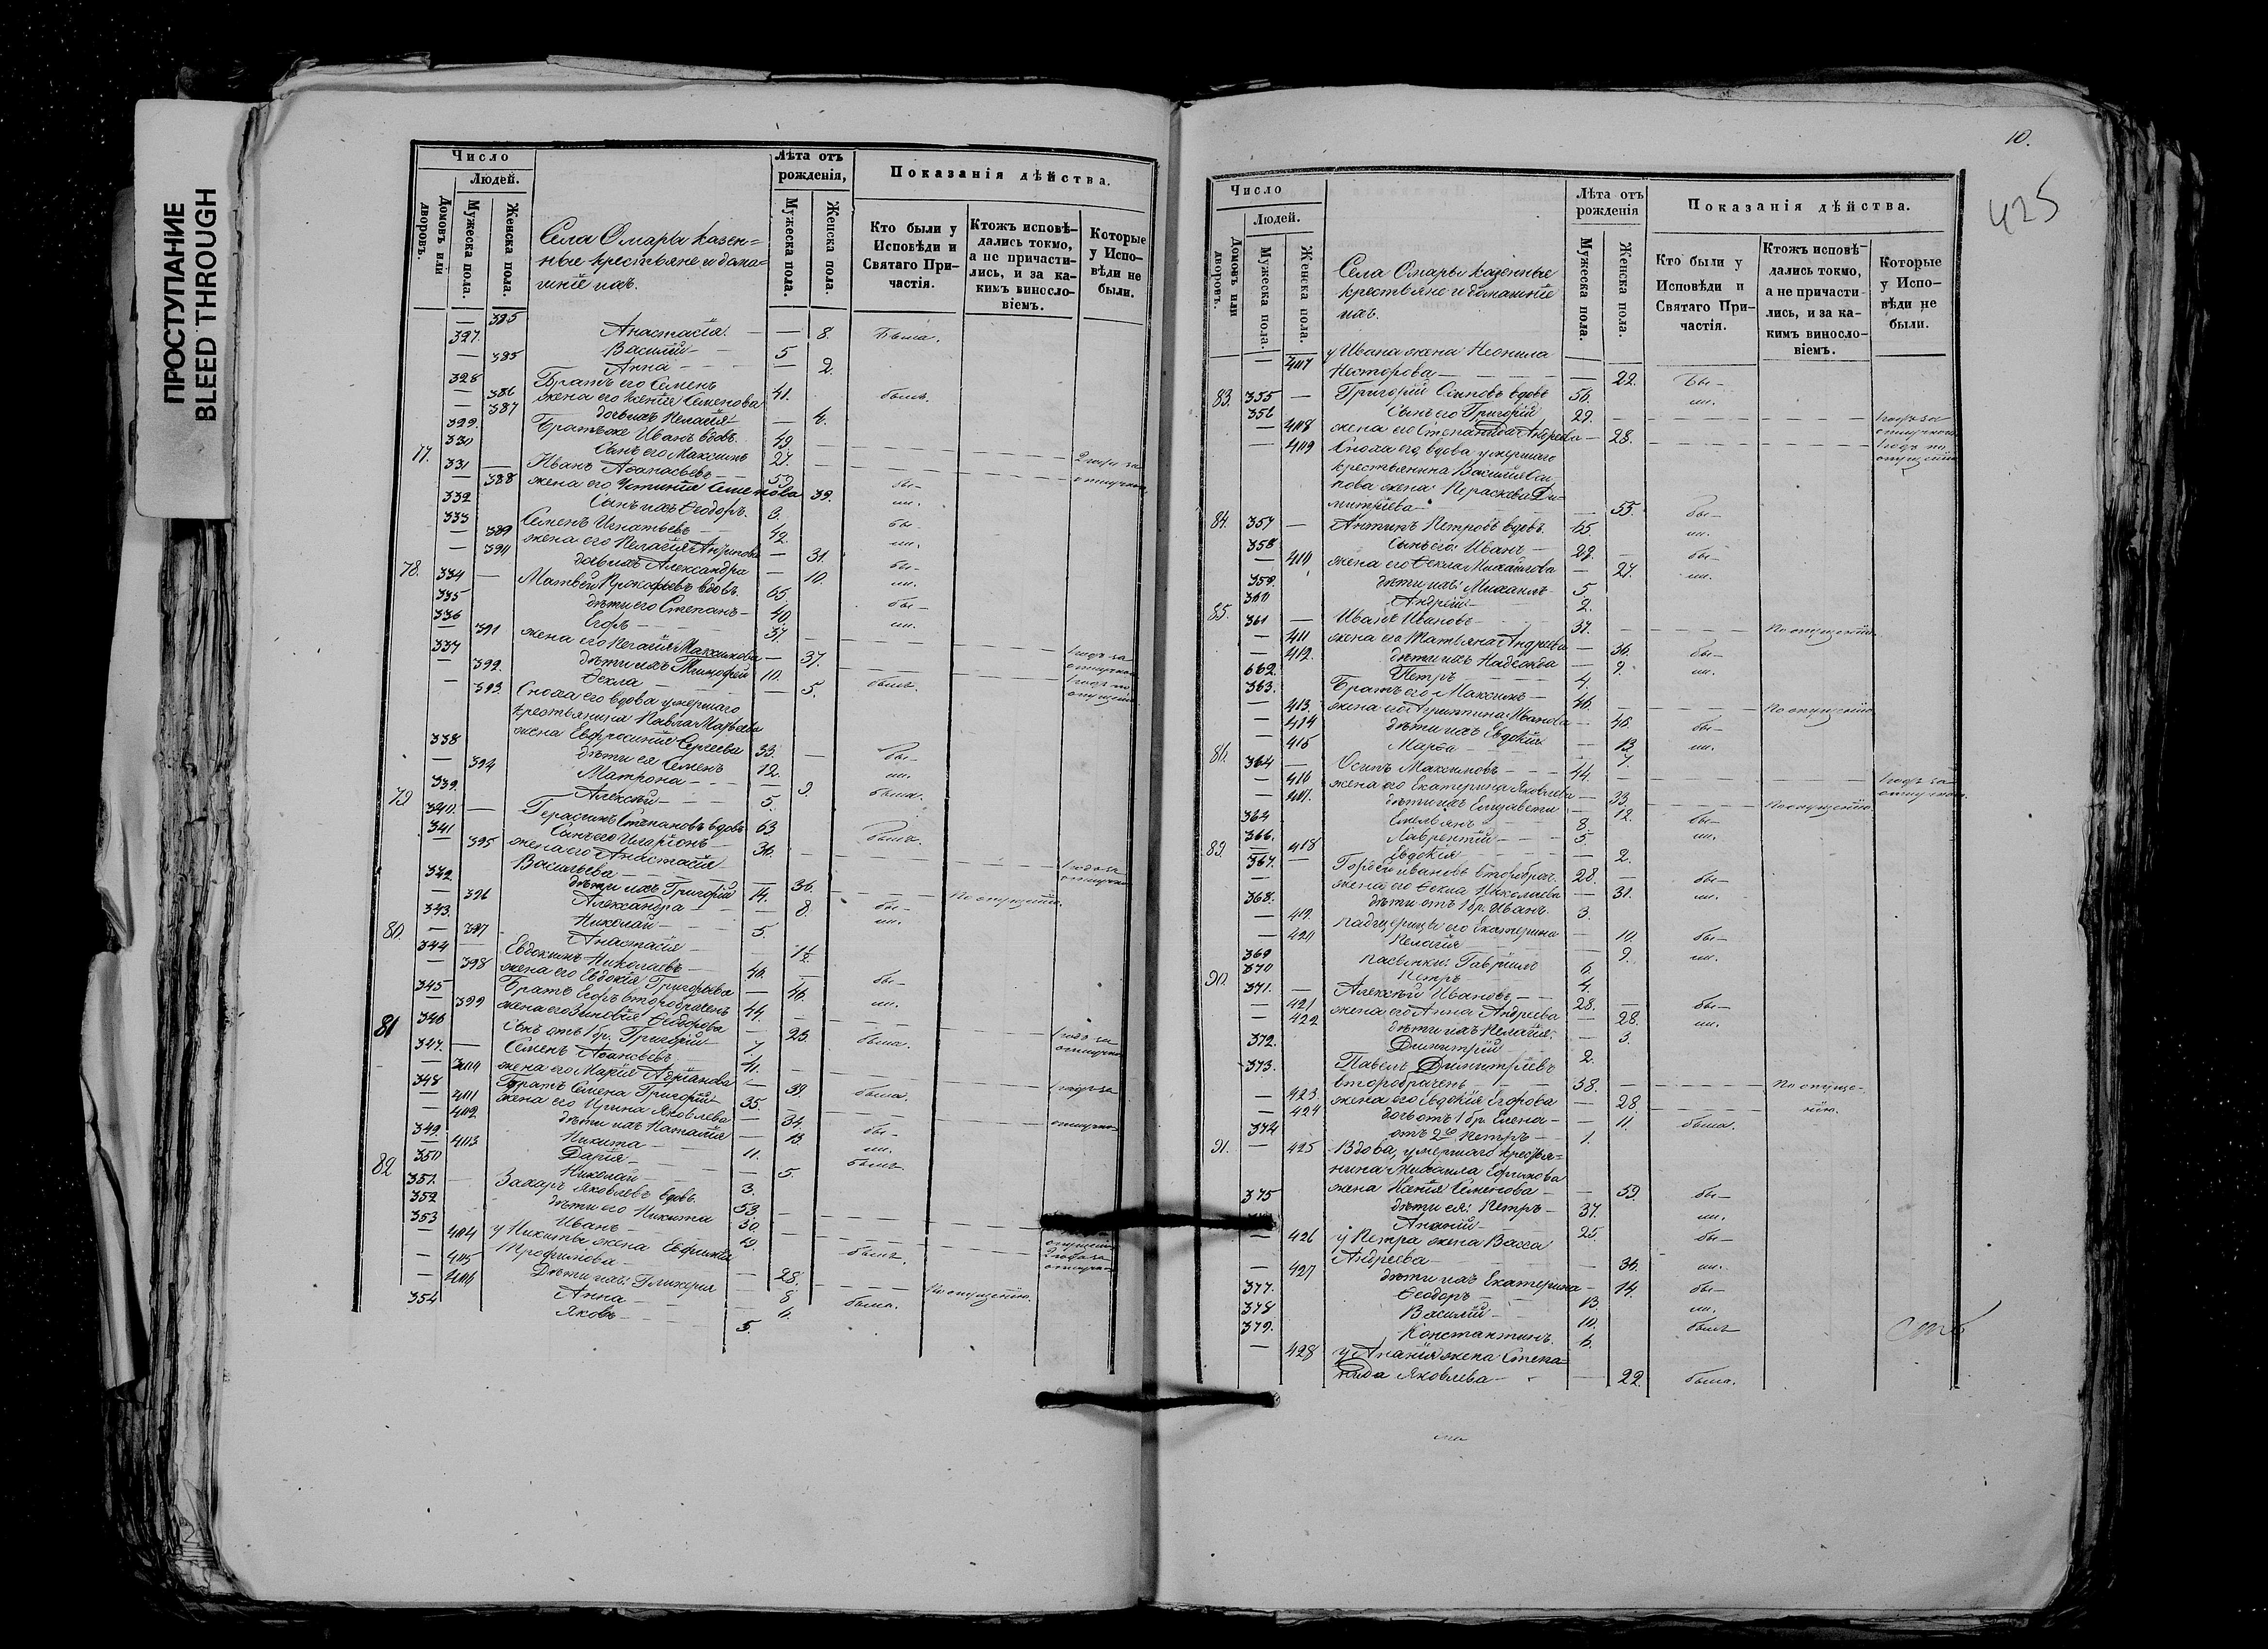 ПРОСТУПАНИЕ
BLEED THROUGH
Число
Людей.
Домовъ или дворовъ.
Мужеска пола.
Женска пола.
Села Омары казен=
ные крестьяне и дома=
шніе ихъ.
Лѣта отъ
рожденія,
Мужеска пола.
Женска пола.
Показанія дѣйства.
Кто были у
Исповѣди и
Святаго При-
частія.
Ктожъ исповѣ-
дались токмо,
а не причасти-
лись, и за ка-
кимъ винносло-
віемъ.
Которые
у Испо-
вѣди не
были.
385 Анастасія — 8. Была.
327. Василій — 5
385 Анна — 2.
328 Братъ его Семенъ 41. былъ.
386 жена его Ксенія Семенова
387 дочь ихъ Пелагія — 4.
329. Братъ же Иванъ вдовъ 49
330 Сынъ его Максимъ 27.
77. 331 Иванъ Аѳанасьевъ 59
388 жена его Устинія Семенова 39. бы—
332 Сынъ ихъ Ѳеодоръ. 3. ли.
333 Семенъ Игнатьевъ 42. бы—
389 жена его Пелагія — 31. ли.
390 дочь ихъ Александра — 10. бы—
78. 334 Матвей Прокофьевъ вдовъ. 65. ли.
335 дѣти его Степанъ 40. бы—
336 Егоръ 37. ли.
391 жена его Пелагія Максимова — 37.
337 дѣти ихъ Тимофей 10.
392. Ѳекла — 5. былъ.
393 Сноха его вдова умершаго
крестьянина Павла Матѳеева
жена Евфросинія Сергеева 33. бы—
338 дѣти ея Семенъ 12. ли.
394 Матрона — 9. была.
339. Алексѣй 5.
79 340. Герасимъ Степановъ вдовъ 63
341 Сынъ его Иларіонъ 36.
395 жена его Анастасія
Васильева — 36.
342 дѣти ихъ Григорій 14. По опущенію.
396 Александра — 8. бы—
343. Николай 5. ли.
397 Анастасія — 1½
80. 344 Евдокимъ Николаевъ 46. бы—
398 жена его Евдокія Григорьева — 46. ли.
345 Братъ Егоръ второбраченъ 44.
399 жена его Зиновія Ѳедорова — 25. была.
346 Сынъ отъ 1 бр. Григорій 7.
81 347. Семенъ 41.
400 жена его Марія — 39. была.
348 Братъ Семена Григорій 35.
401 жена его Ирина Яковлева — 34. бы—
402 дѣти ихъ Наталія — 13 ли.
349 Никита 11. былъ
403 Дарія — 5.
350 Николай 3.
82 351. Захаръ Яковлевъ вдовъ. 53
352 дѣти его Никита 30
353 Иванъ 19. былъ.
404 у Никиты жена Евфимія
Трофимова — 28.
405 Дѣти ихъ: Гликерія — 8 По опущенію.
406 Анна — 6. была.
354 Яковъ 3.
10.
425
Число
Людей.
Домовъ или дворовъ.
Мужеска пола.
Женска пола.
Села Омары казенные
крестьяне и домашніе
ихъ.
Лѣта отъ
рожденія
Мужеска пола.
Женска пола.
Показанія дѣйства.
Кто были у
Исповѣди и
Святаго При-
частія.
Ктожъ исповѣ-
дались токмо,
а не причасти-
лись, и за ка-
кимъ винносло-
віемъ.
Которые
у Испо-
вѣди не
были.
407 у Ивана жена Неонила
Несторова — 22. Бы—
83. 355 Григорій Осиповъ вдовъ 56. ли.
356 Сынъ его Григорій 29.
408 жена его Степанида Андреева — 28.
409 Сноха его, вдова умершаго
крестьянина Василія Оси
пова жена Параскева Ди=
митріева — 55. бы—
84. 357 Антипъ Петровъ вдовъ. 65. ли.
358 Сынъ его: Иванъ 29. бы—
410 жена его Ѳекла Михайлова — 27. ли.
359. дѣти ихъ: Михаилъ 5
360 Андрей 2.
85. 361 Иванъ Ивановъ 37. По опущенію.
411 жена его Татьяна Андреева — 36. бы—
412. дѣти ихъ Надежда — 9. ли.
362. Петръ 4.
363. Братъ его Максимъ 46. По опущенію
413. жена его Агриппина Иванова — 46. бы—
414 дѣти ихъ Евдокія — 13 ли.
415 Марѳа — 7
86. 364 Осипъ Максимовъ 44.
416 жена его Екатерина Яковлева — 33. По опущенію
417. дѣти ихъ Елизавета — 12. бы—
Емельянъ 8. ли.
366. Лаврентій 5.
418 Евдокія — 2.
89. 367. Ивановъ второбрач. 28. бы—
жена его Ѳекла Николаева — 31. ли.
368. дѣти отъ 1 бр. Иванъ. 3.
419. падчерицы его Екатерина — 10. бы—
420 Пелагія — 9. ли.
369 пасынки: Гавріилъ 6.
370 Петръ 4.
90. 371. Алексѣй Ивановъ 28. бы—
421 жена его Анна Андреева — 28. ли.
422 дѣти ихъ Пелагія — 3.
372. Димитрій 2.
373. Павелъ Димитріевъ
второбраченъ 38. По опуще-
423. жена его Евдокія Егорова — 28. нію.
424 дочь отъ 1 бр. Елена — 11. была.
374 отъ 2го Петръ 1.
91. 425 Вдова, умершаго крестья=
нина Михаила Ефимова
жена Ксенія Семенова — 59. бы—
375 дѣти ея: Петръ 37. ли.
Ананій 25. бы—
426 у Петра жена Васса
Андреева — 36. ли.
427 дѣти ихъ Екатерина — 14. бы—
377. Ѳеодоръ 13. ли.
378 Василій 10. былъ
379. Константинъ. 6.
428 у Ананія жена Степа=
нида Яковлева — 22. была.